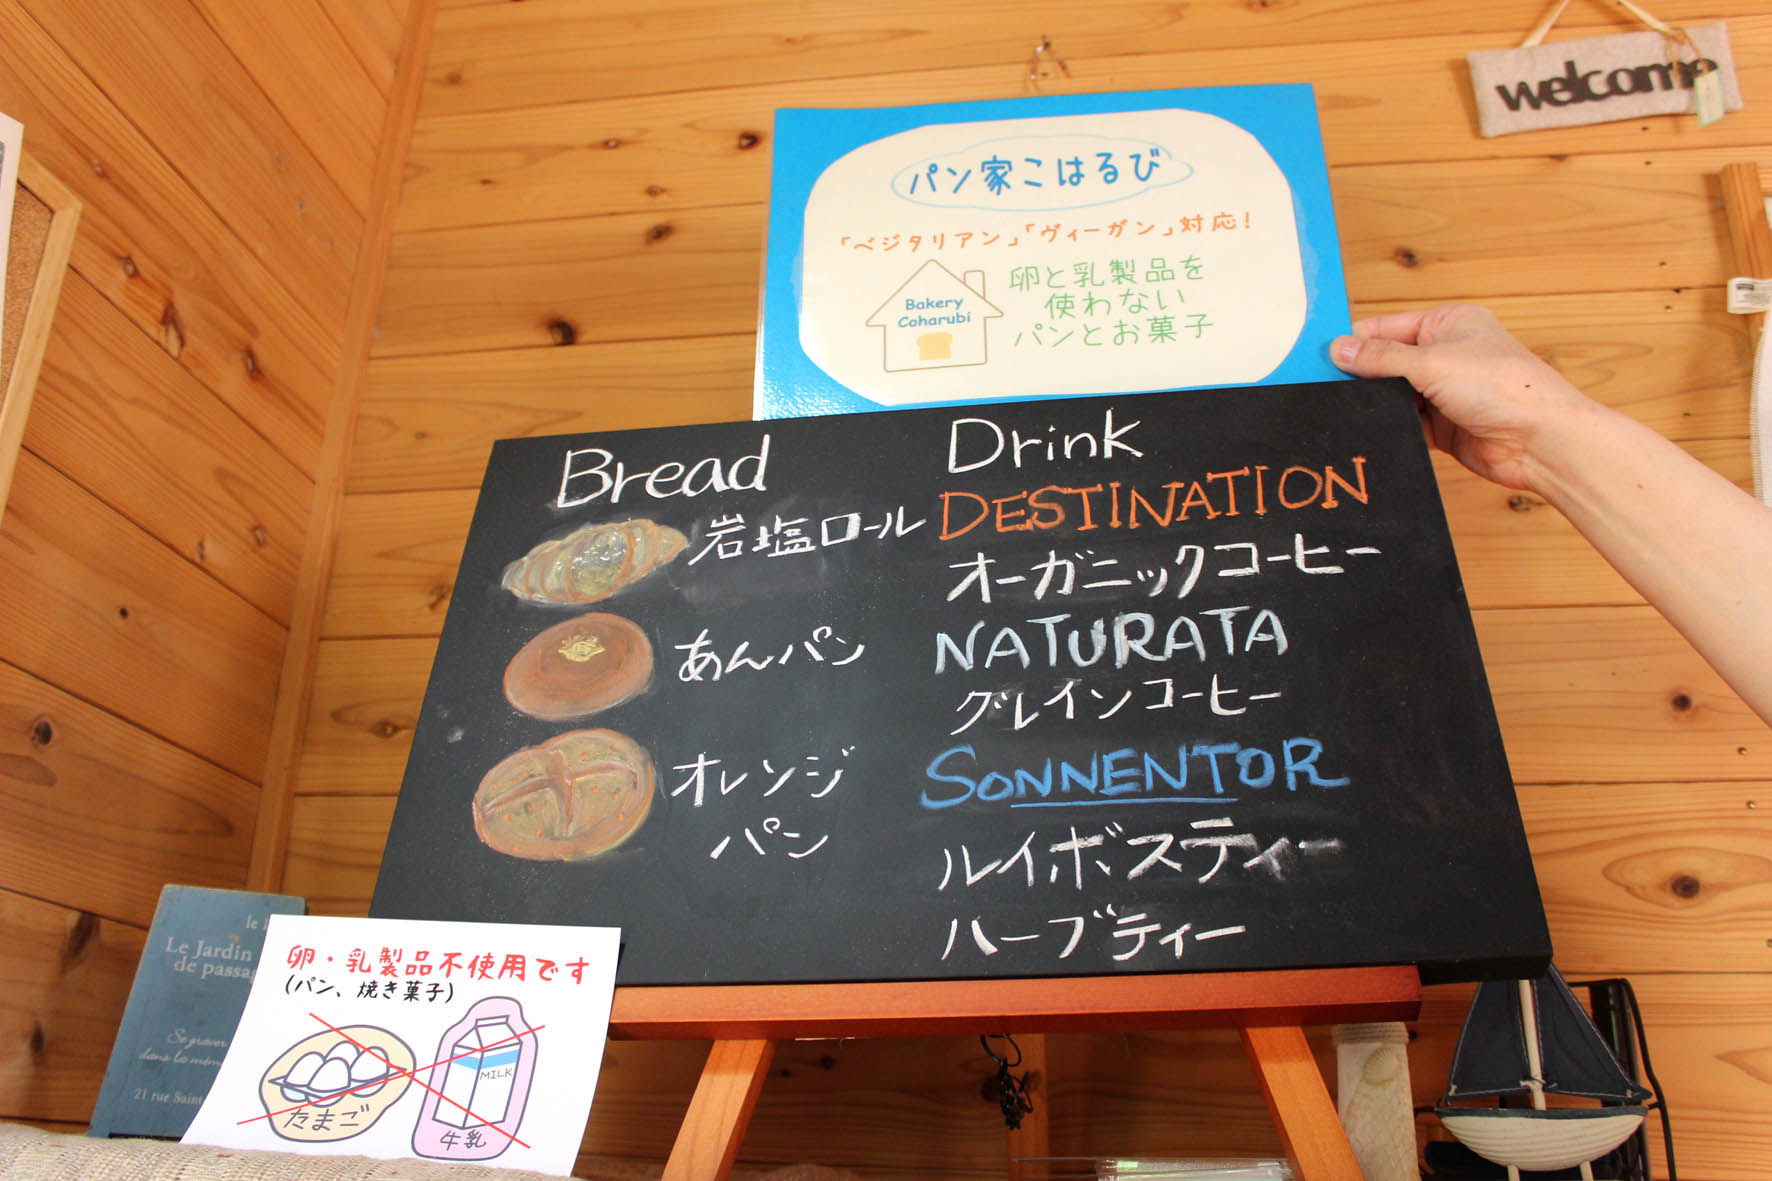 welcome
パン家こはるび
「ベジタリアン」「ヴィーガン」対応!
卵と乳製品を
使わない
パンとお菓子
Bakery
Coharubi
Bread
岩塩ロール
あんパン
オレンジ
パン
Drink
DESTINATION
オーガニックコーヒー
NATURATA
グレインコーヒー
SONNENTOR
ルイボスティー
ハーブティー
卵・乳製品不使用です
(パン、焼き菓子)
たまご
MILK
牛乳
le
Le Jardin
de
21 rue Saint